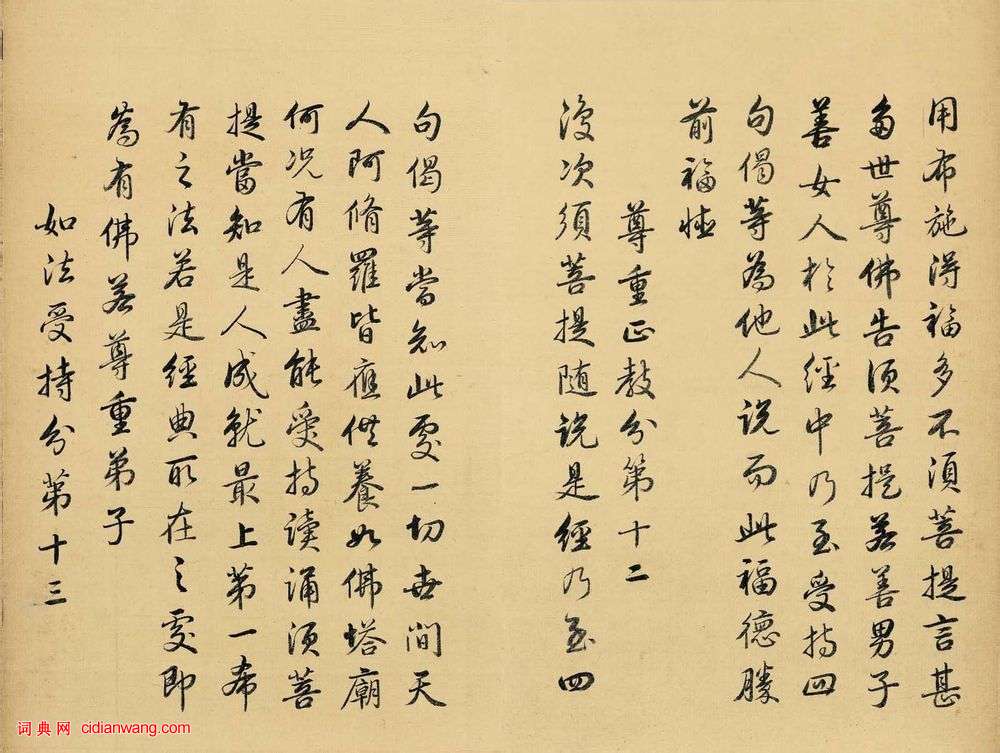 用布施得福多不須菩提言甚
多世尊佛告須菩提若善男子
善女人於此經中乃至受持四
句偈等為他人說而此福德勝
前福德
尊重正教分第十二
復次須菩提隨說是經乃至四
句偈等當知此處一切世間天
人阿脩羅皆應供養如佛塔廟
何況有人盡能受持讀誦須菩
提當知是人成就最上第一希
有之法若是經典所在之處即
為有佛若尊重弟子
如法受持分第十三
词典网 cidianwang.com